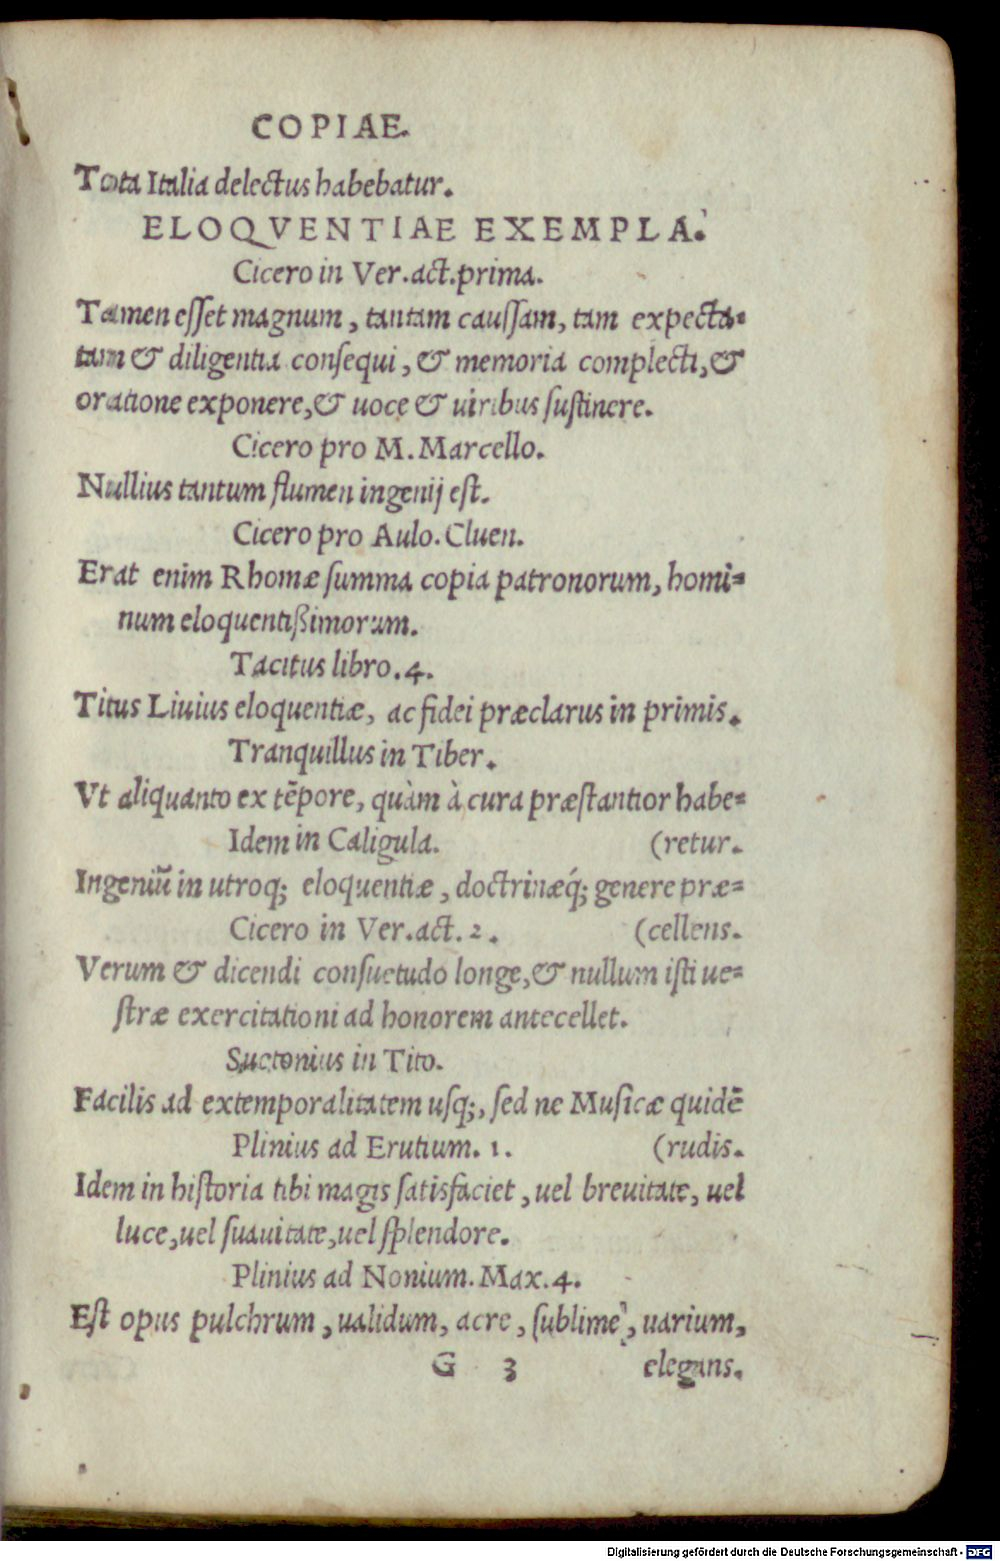 COPIAE.
Tota Italia delectus habebatur.
ELOQVENTIAE EXEMPLA.
Cicero in Ver.act.prima.
Tamen eſſet magnum, tantam cauſſam, tam expecta⸗
tam & diligentia conſequi, & memoria complecti, &
oratione exponere, & uoce & uiribus ſuſtinere.
Cicero pro M. Marcello.
Nullius tantum flumen ingenij eſt.
Cicero pro Aulo. Cluen.
Erat enim Rhomæ ſumma copia patronorum, homi⸗
num eloquentißimorum.
Tacitus libro.4.
Titus Liuius eloquentiæ, ac fidei præclarus in primis.
Tranquillus in Tiber.
Vt aliquanto ex tẽpore, quàm à cura præſtantior habe⸗
Idem in Caligula. (retur.
Ingeniũ in utroq; eloquentiæ, doctrinæq́; genere præ⸗
Cicero in Ver.act.2. (cellens.
Verum & dicendi conſuetudo longe, & nullum iſti ue⸗
ſtræ exercitationi ad honorem antecellet.
Suetonius in Tito.
Facilis ad extemporalitatem uſq;, ſed ne Muſicæ quidẽ
Plinius ad Erutium. 1. (rudis.
Idem in hiſtoria tibi magis ſatisfaciet, uel breuitate, uel
luce, uel ſuauitate, uel ſplendore.
Plinius ad Nonium. Max.4.
Eſt opus pulchrum, ualidum, acre, ſublime, uarium,
G 3 elegans.
Digitalisierung gefördert durch die Deutsche Forschungsgemeinschaft - DFG